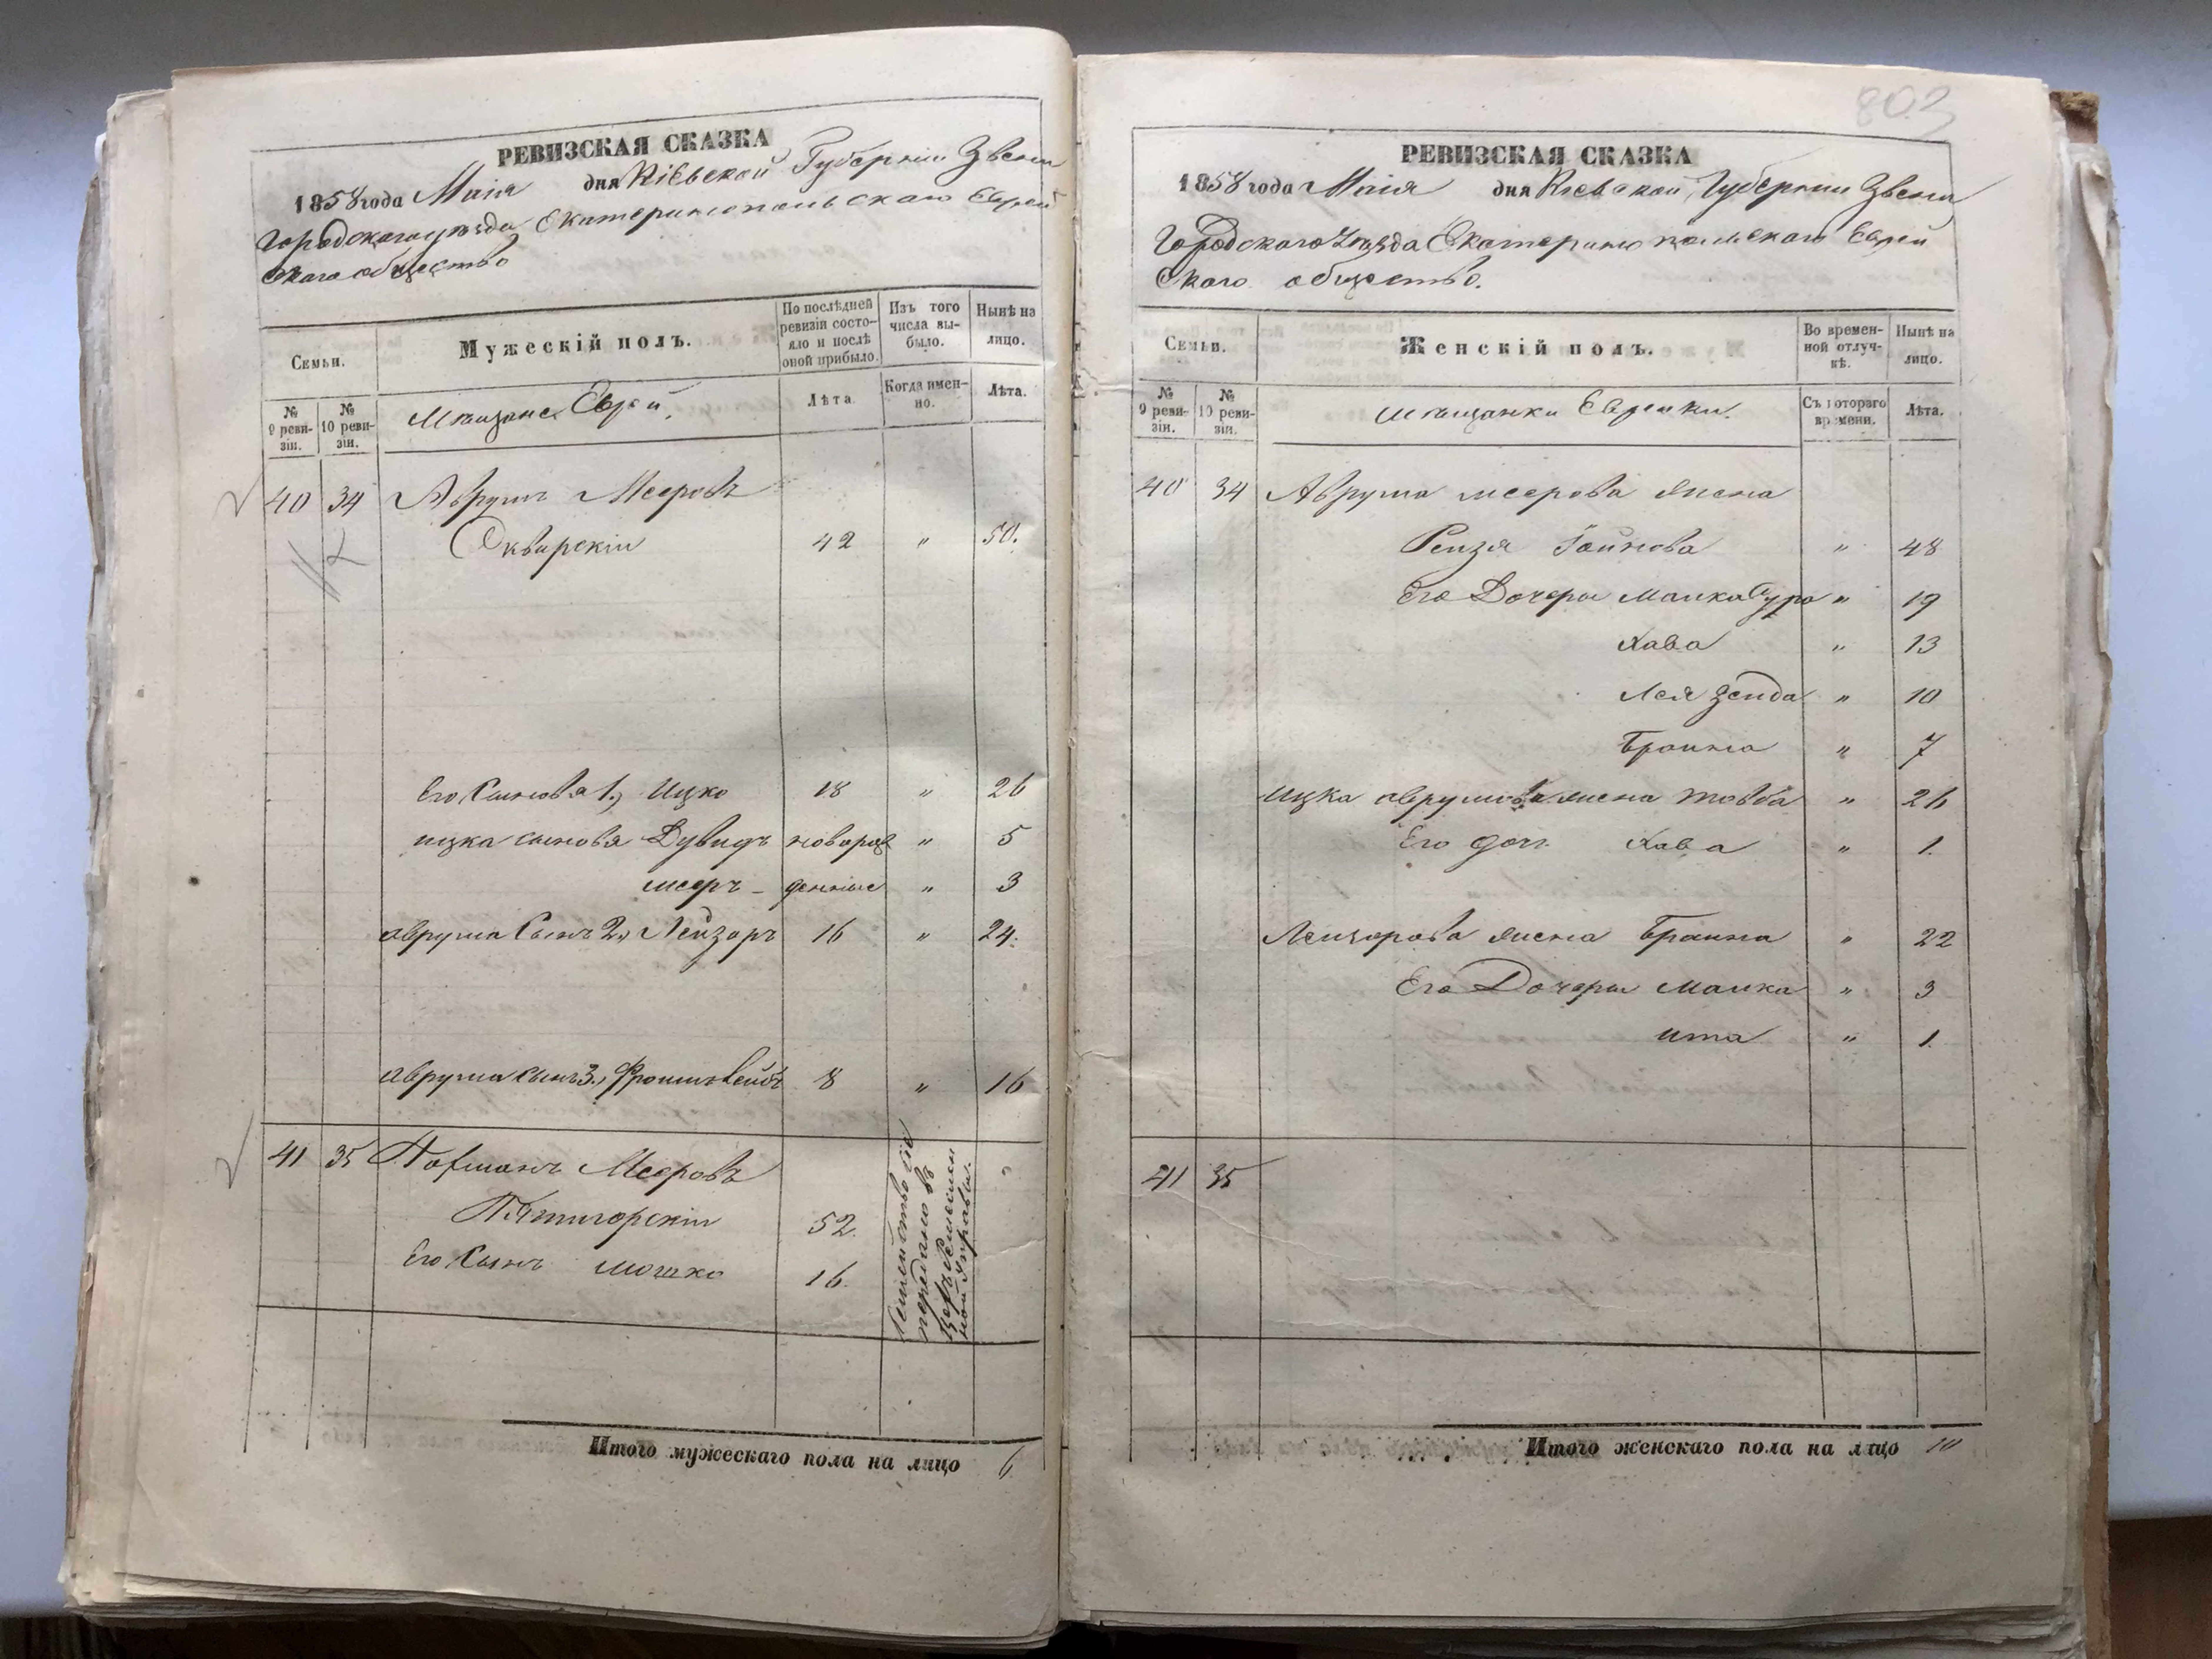 РЕВИЗСКАЯ СКАЗКА
1858 года Маія дня Кіевской Губерніи Звени
городскаго уѣзда Екатеринопольскаго Еврей
скаго общества
Семьи.
Мужескій полъ.
По послѣдней ревизіи состояло и послѣ оной прибыло.
Изъ того числа выбыло.
Нынѣ на лицо.
№ 9 ревизіи.
№ 10 ревизіи.
Мѣщане Евреи.
Лѣта
Когда именно.
Лѣта.
40 34 Аврумъ Мееровъ
Сквирскій 42 " 50.
Его Сыновья 1., Ицко 18 " 26
ицка сыновья Дувидъ новорож " 5
мееръ - денные " 3
аврума Сынъ 2., Лейзоръ 16 " 24.
аврума сынъ 3., Фроимъ Лейбъ 8 " 16
41 35 Мееровъ
Пятигорскій 52.
Его Сынъ мошко 16.
передано въ
Итого мужескаго пола на лицо 6
803
РЕВИЗСКАЯ СКАЗКА
1858 года Маія дня Кіевской Губерніи Звени
Городскаго Уѣзда Екатеринопольскаго Еврей
скаго общества.
Семьи.
Женскій полъ.
Во временной отлучкѣ.
Нынѣ на лицо.
№ 9 ревизіи.
№ 10 ревизіи.
мѣщанки Еврейки.
Съ котораго времени.
Лѣта.
40 34 Аврума меерова жена
Рейзя " 48
Его Дочери Малка Сура " 19
Хава " 13
Лея Зенда " 10
Браина " 7
Ицка аврумова жена Товба " 26
Его дочь Хава " 1.
Лейзорова жена Браина " 22
Его Дочери Малка " 3
ита " 1.
41 35
Итого женскаго пола на лицо 10